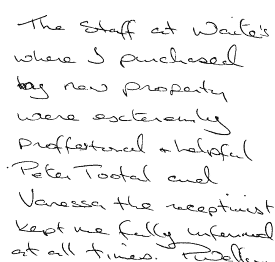 The Staff at Waite's
where I purchased
my new property
were exctereamly
proffertional + helpful
Peter Tootal and
Vanessa the receptionist
kept me fully informed
at all times.